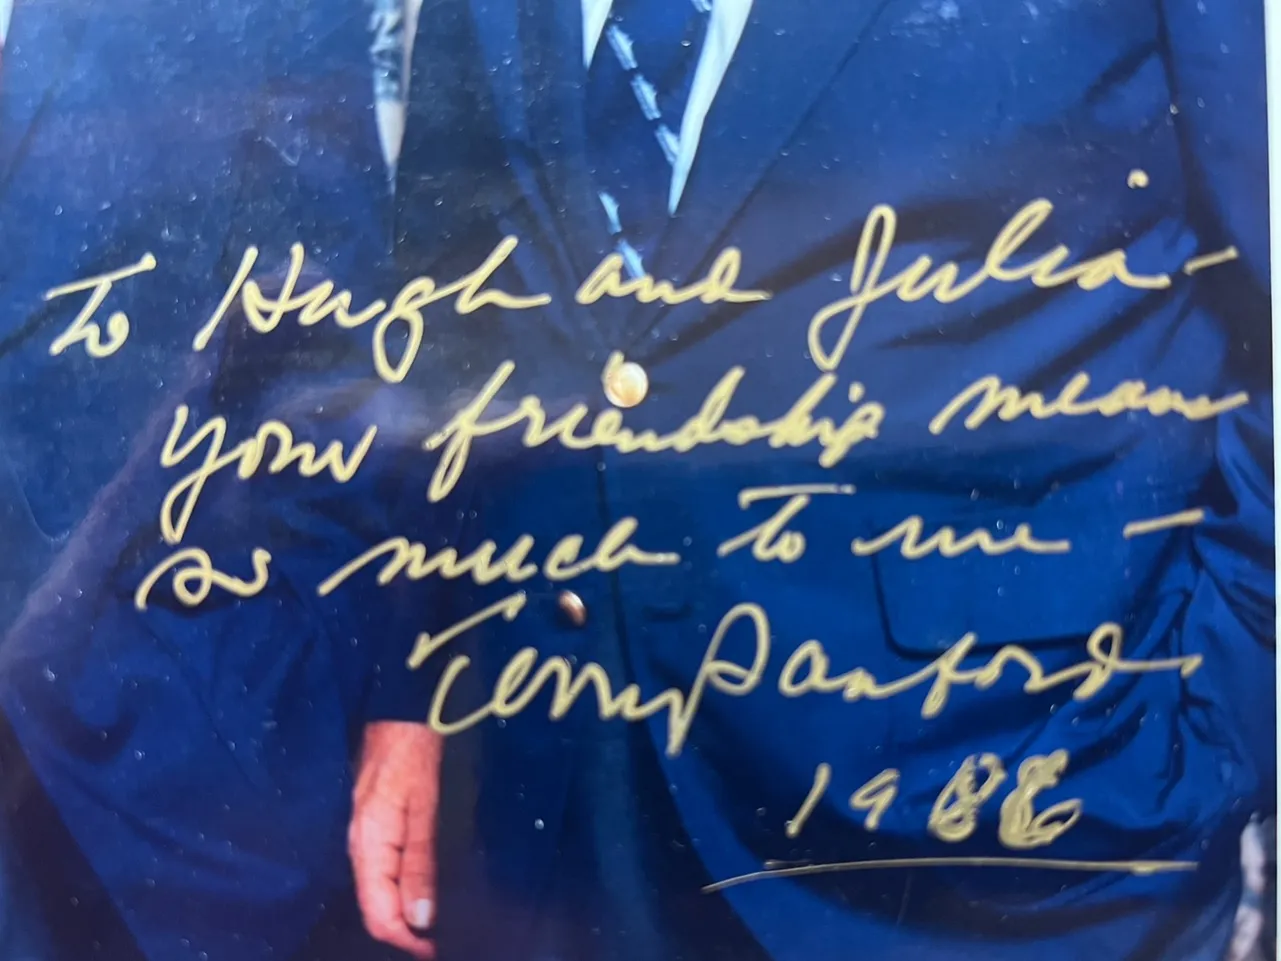 To Hugh and Julia -
your friendship means
so much to me -
Terry Sanford
1988